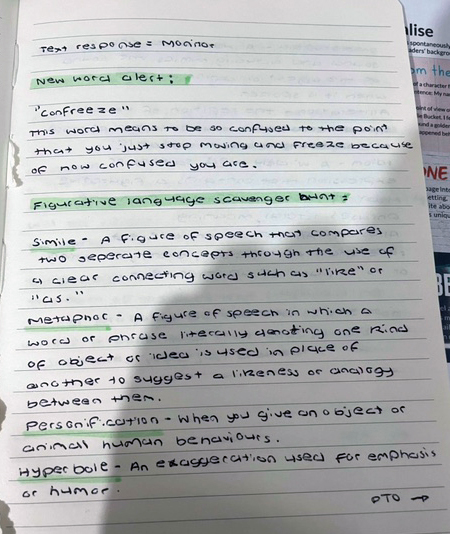 Text response = Monitor
New word alert:
"confreeze"
This word means to be so confused to the point
that you just stop moving and freeze because
of how confused you are.
Figurative language scavenger hunt:
Simile - A figure of speech that compares
two seperate concepts through the use of
a clear connecting word such as "like" or
"as."
Metaphor - A figure of speech in which a
word or phrase literally denoting one kind
of object or idea is used in place of
another to suggest a likeness or analogy
between them.
Personification - When you give an object or
animal human behaviours.
Hyperbole - An exaggeration used for emphasis
or humor.
PTO →
alise
spontaneously
aders' backgrou
om the
of a character t
ntence: My nam
oint of view o
e Bucket. I h
and a golden
appened bef
ONE
page inte
etting.
ite abo
s uniqu
BE